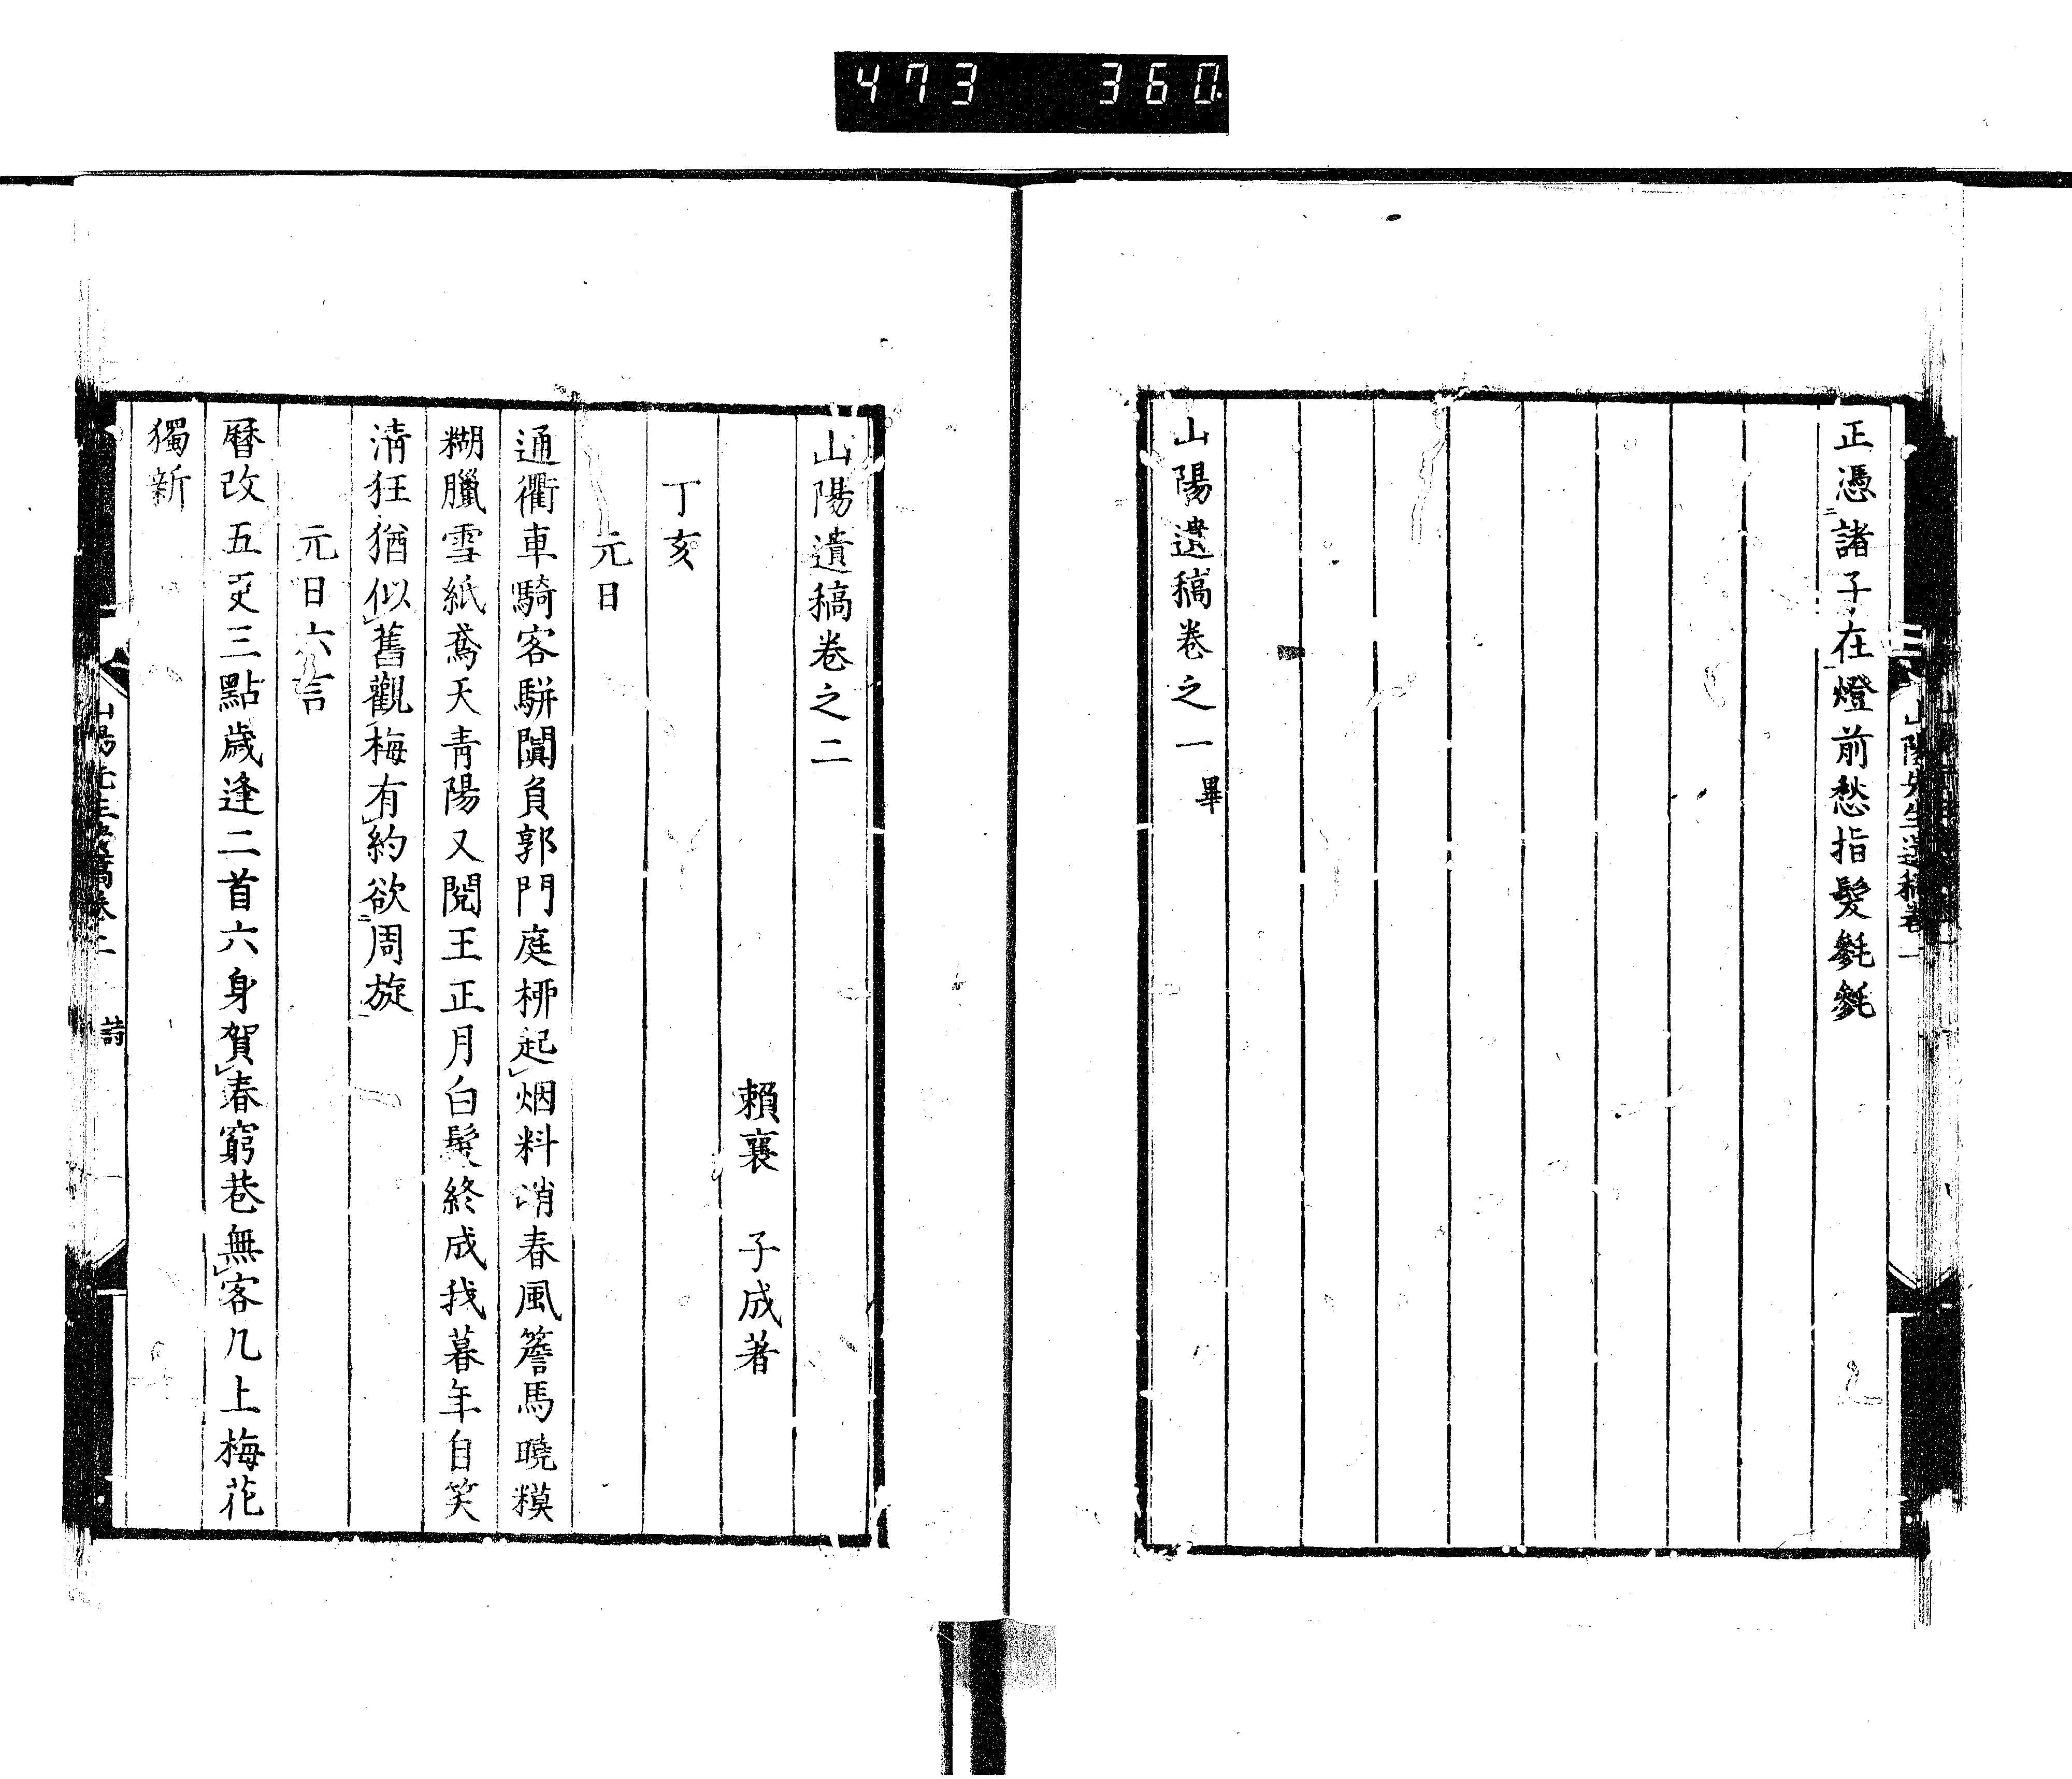 473 360
正憑諸子在燈前愁指髮毿毿
山陽遺稿卷之一 畢
山陽先生遺稿卷一
山陽遺稿卷之二
賴襄 子成著
丁亥
元日
通衢車騎客駢闐負郭門庭柳起烟料峭春風簷馬曉糢
糊臘雪紙鳶天青陽又閱王正月白髮終成我暮年自笑
清狂猶似舊觀梅有約欲周旋
元日六言
曆改五更三點歲逢二首六身賀春窮巷無客几上梅花
獨新
山陽先生遺稿卷二 詩